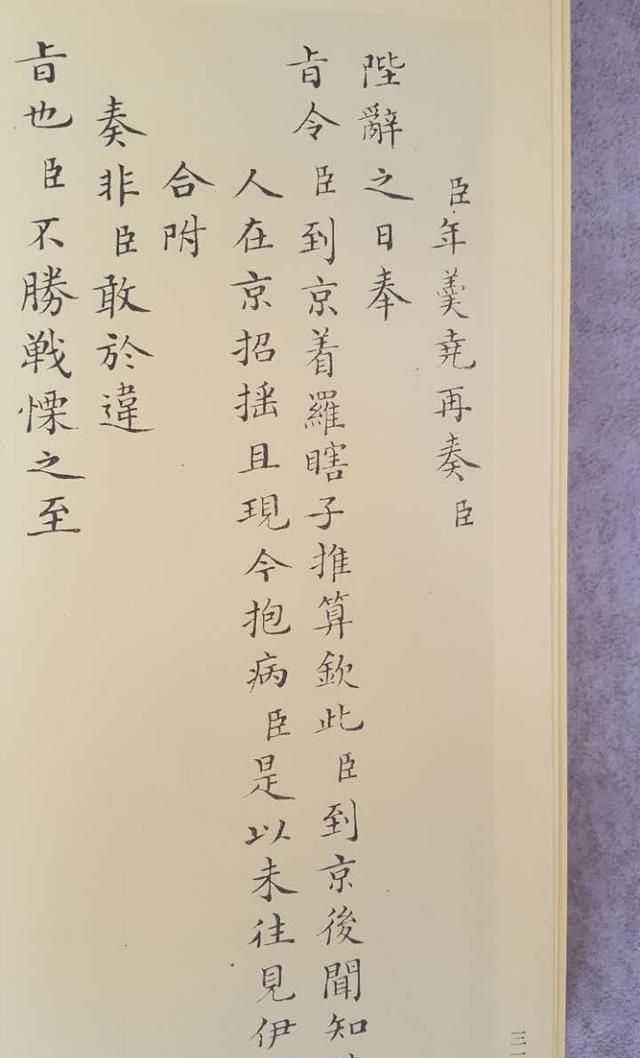 臣年羹堯再奏臣
陛辭之日奉
旨令臣到京着羅瞎子推算欽此臣到京後聞知
人在京招摇且現今抱病臣是以未往見伊
合附
奏非臣敢於違
旨也臣不勝戰慄之至
三